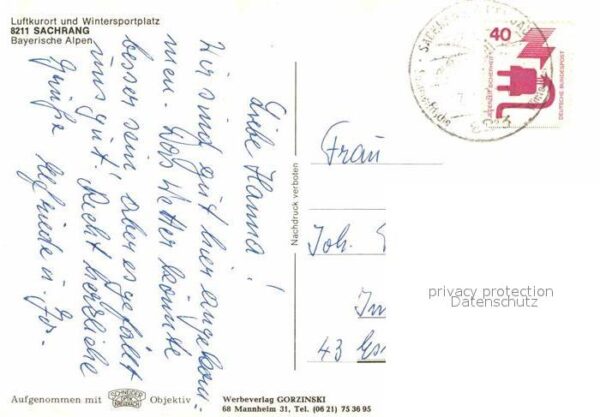 Luftkurort und Wintersportplatz
8211 SACHRANG
Bayerische Alpen
Liebe Hanna!
Wir sind gut hier angekom-
men. Das Wetter könnte
besser sein, aber es gefällt
uns gut! Recht herzliche
Grüße Elfriede u.
Nachdruck verboten
Frau
Joh.
43
40
DEUTSCHE BUNDESPOST
privacy protection
Datenschutz
Aufgenommen mit
SCHNEIDER
KREUZNACH
Objektiv
Werbeverlag GORZINSKI
68 Mannheim 31, Tel. (06 21) 75 36 95